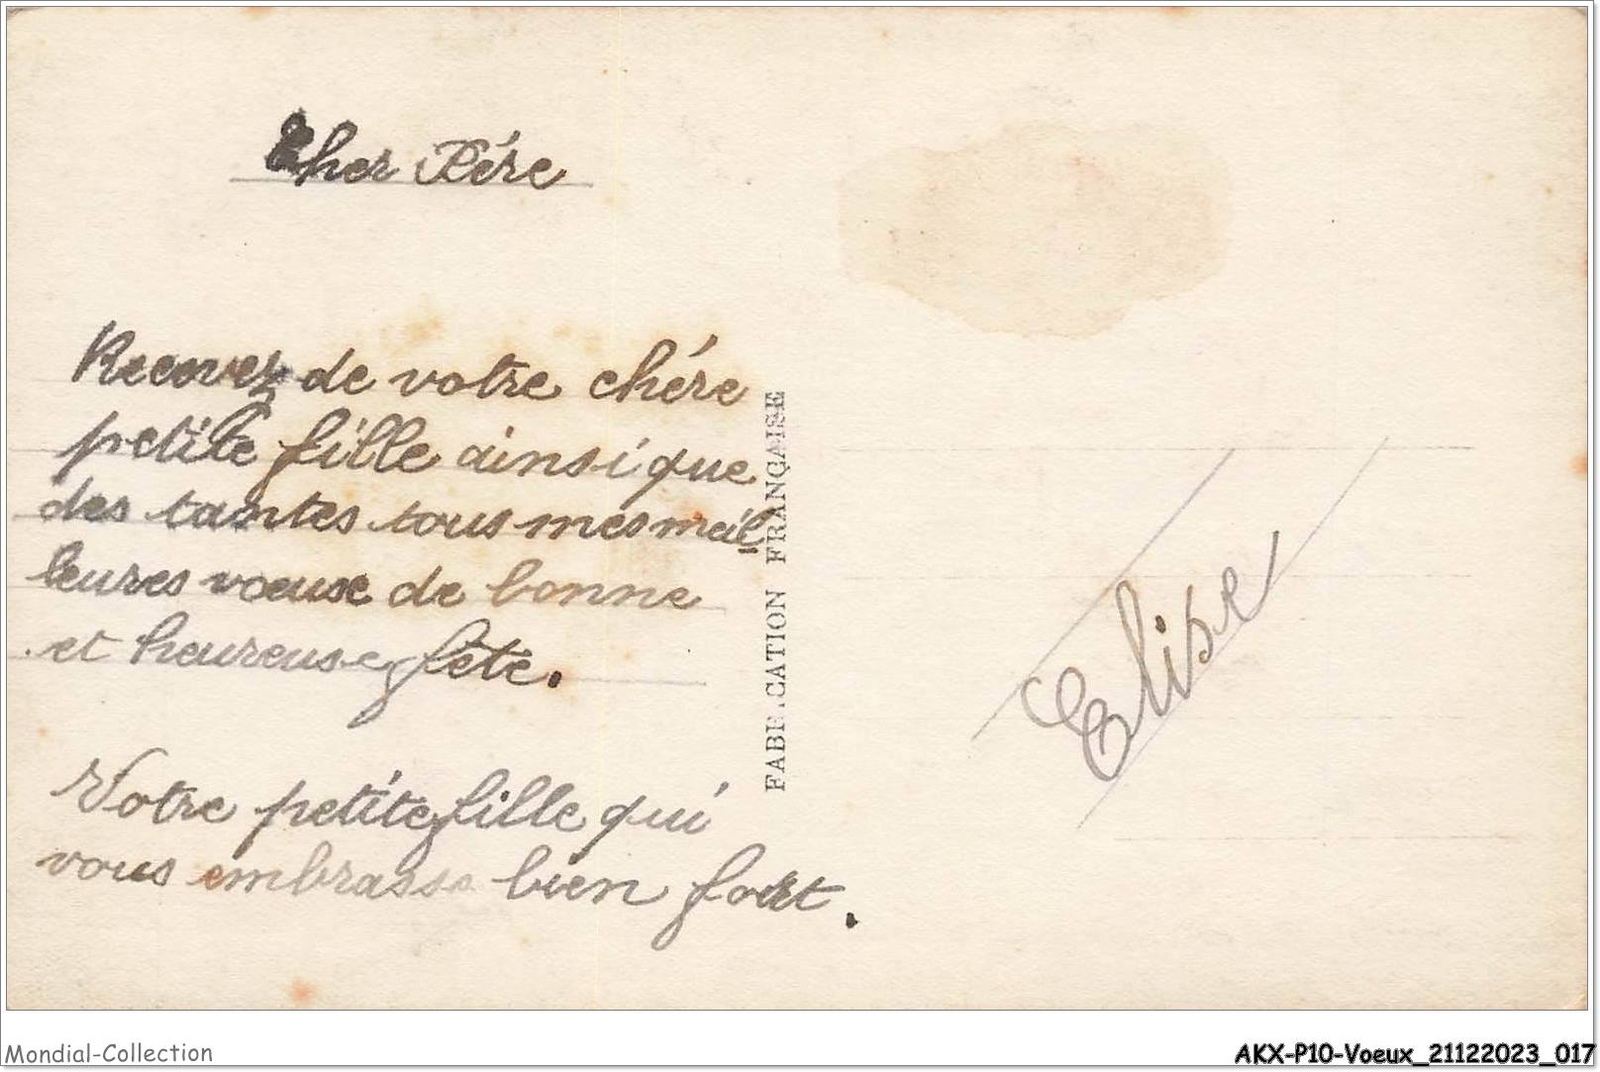 Cher Père
Recevez de votre chére
petite fille ainsi que
des tantes tous mes meil
leures voeuse de bonne
et heureuse fête.
Votre petite fille qui
vous embrasse bien fort.
FABRICATION FRANÇAISE
Elise
Mondial-Collection
AKX-P10-Voeux_21122023_017